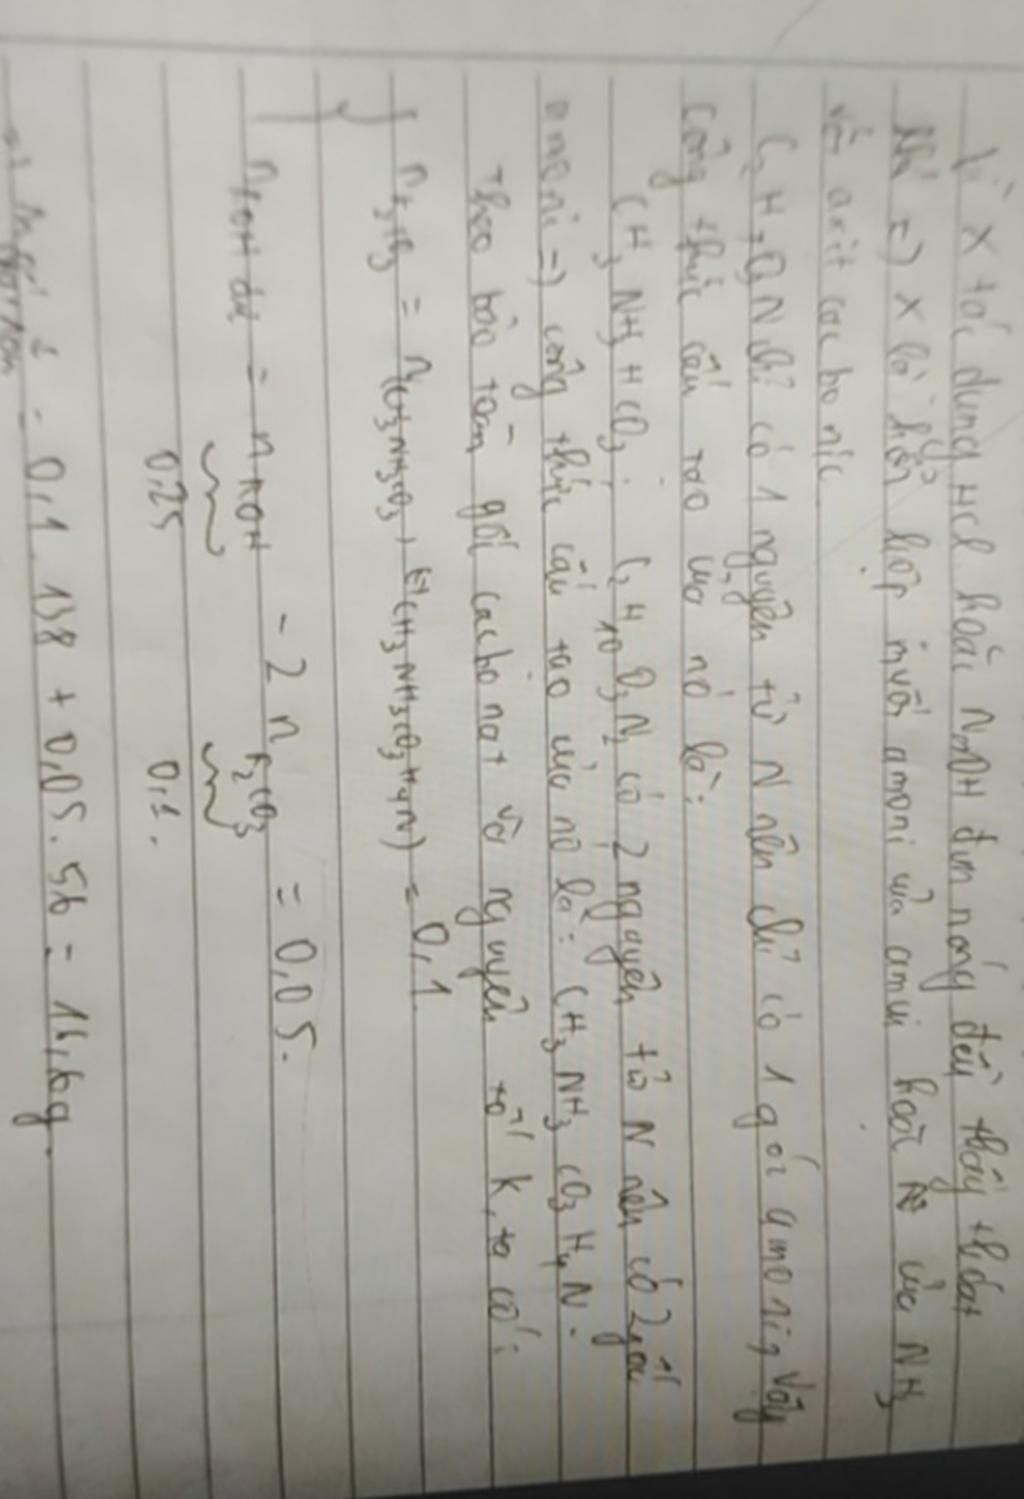 Vì X tác dụng HCl hoặc NaOH đun nóng đều thấy thoát
khí => X là hỗn hợp muối amoni của amin hoặc của NH3
với axit cacbonic.
C2H7O3N chỉ có 1 nguyên tử N nên chỉ có 1 gốc amoni, vậy
công thức cấu tạo của nó là:
CH3NH3HCO3; C2H10O3N2 có 2 nguyên tử N nên có 2 gốc
amoni => công thức cấu tạo của nó là: CH3NH3CO3H4N.
Theo bảo toàn gốc cacbonat và nguyên tố K, ta có:
nK2CO3 = n(CH3NH3CO3 + CH3NH3CO3H4N) = 0,1
nKOH dư = nKOH - 2nK2CO3 = 0,05.
0,25 0,1.
= 0,1.138 + 0,05.56 = 16,6g.